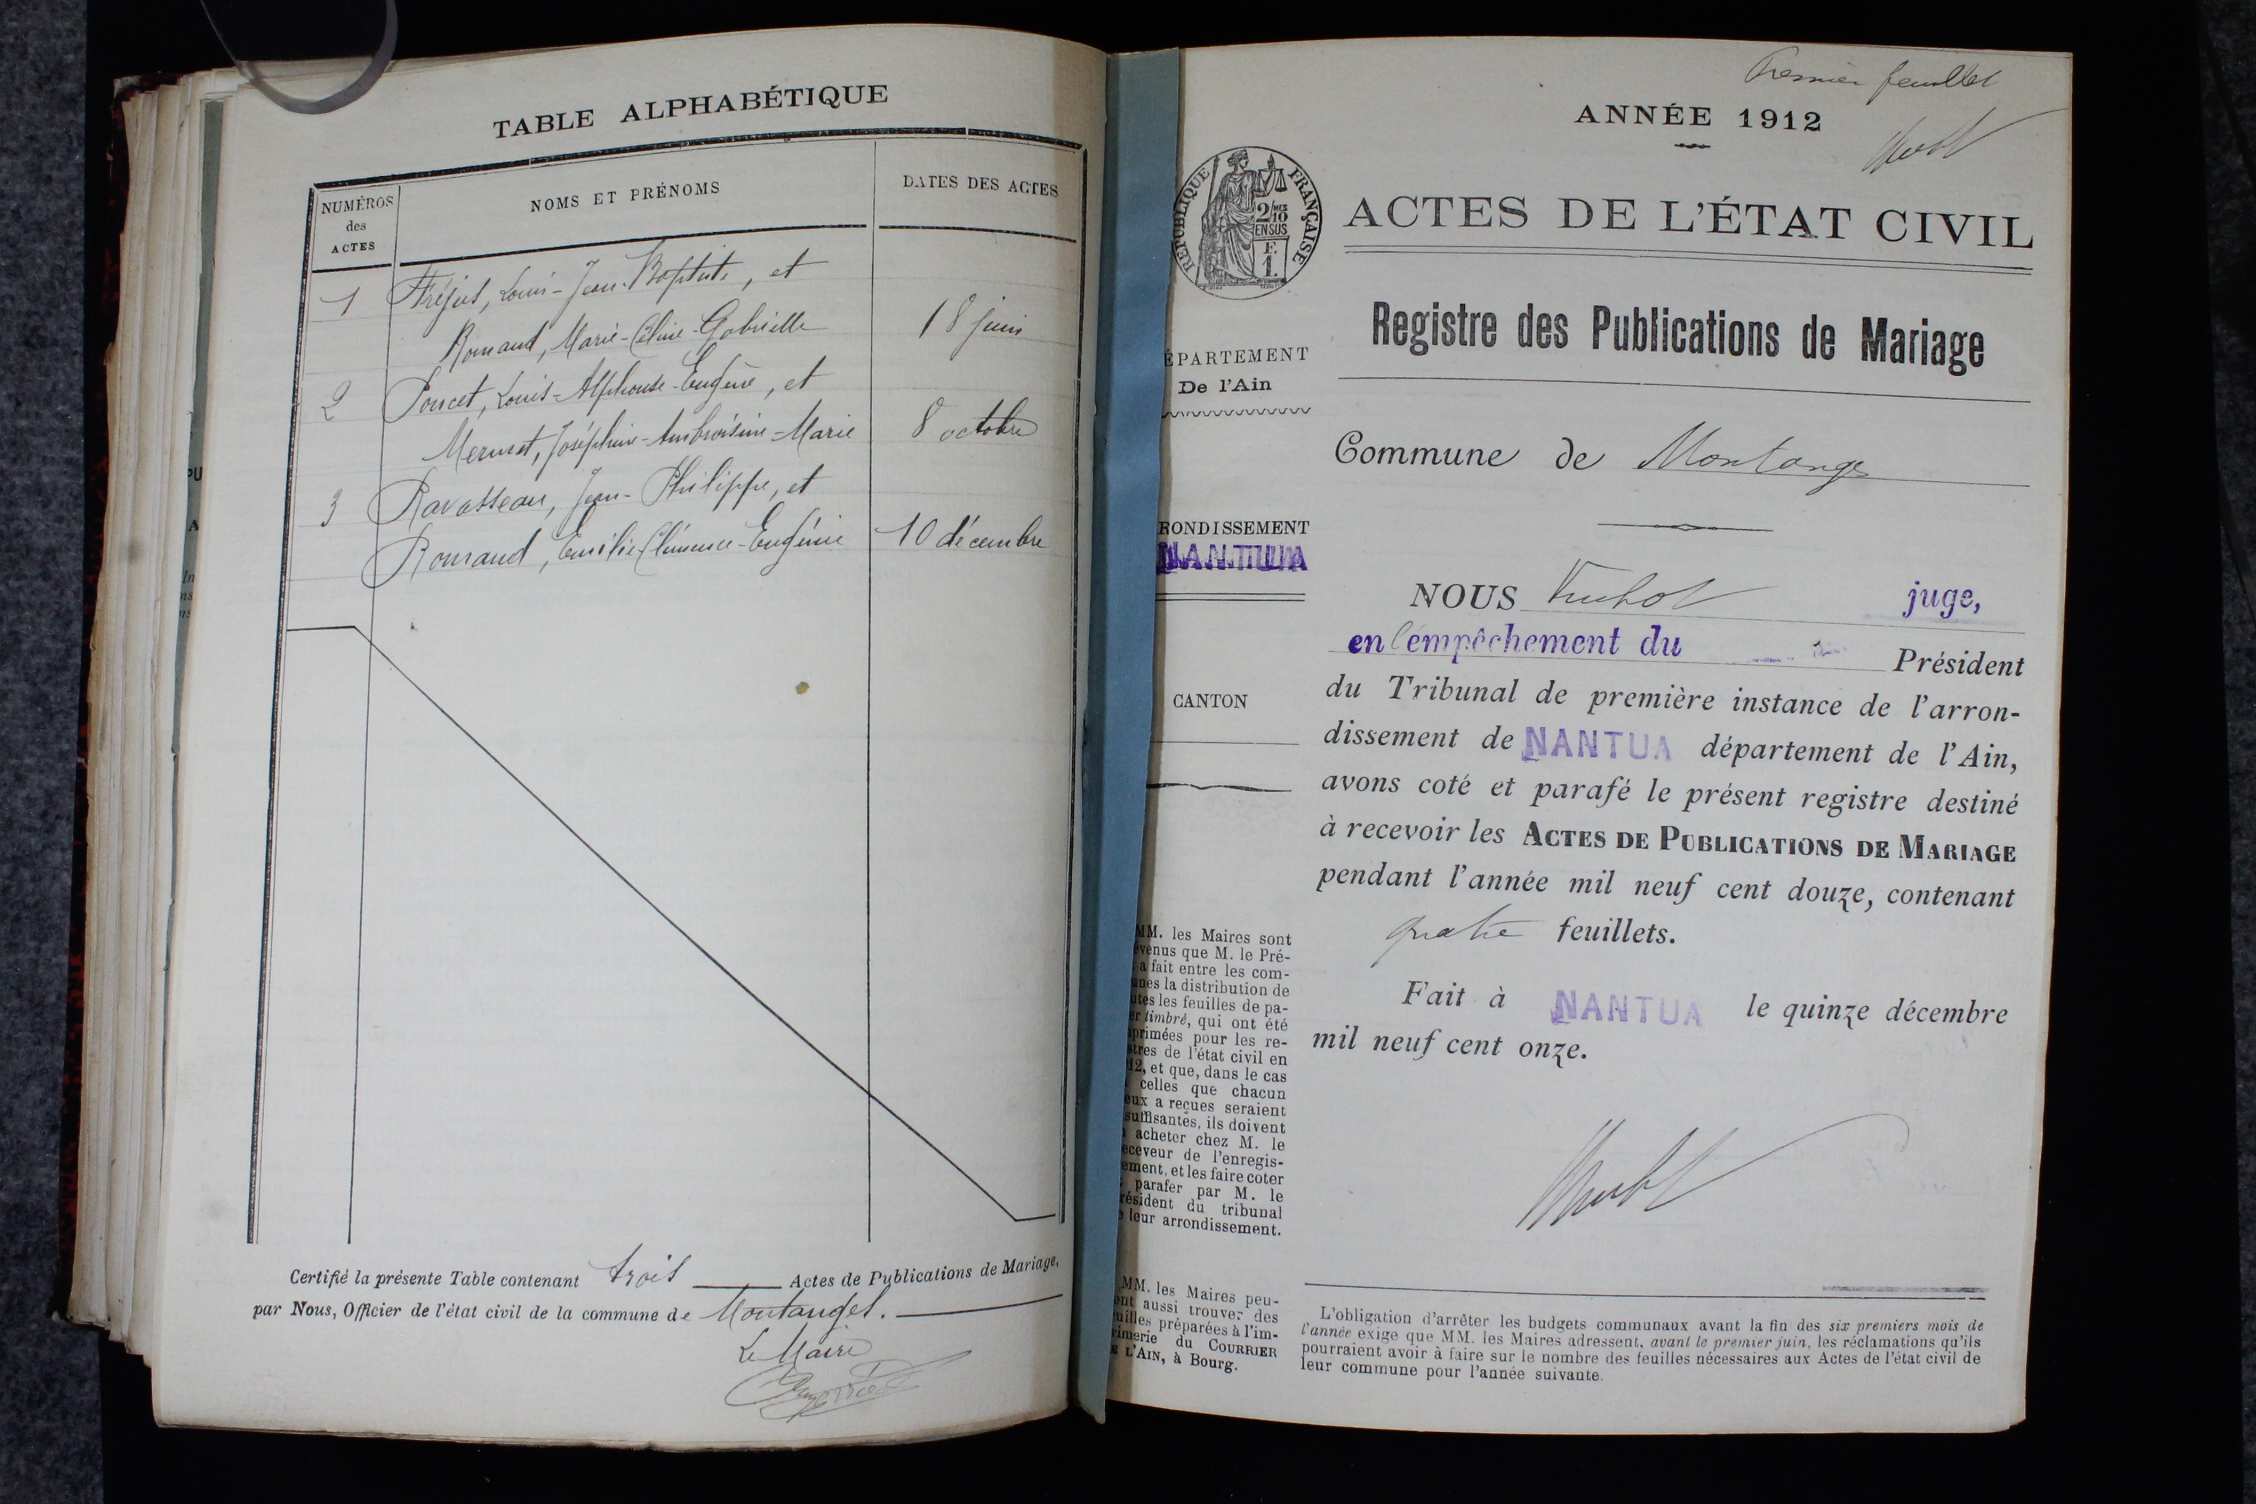 TABLE ALPHABÉTIQUE
NUMÉROS
des
ACTES
NOMS ET PRÉNOMS
DATES DES ACTES
1 Fréjus, Louis-Jean-Baptiste, et
Romand, Marie-Céline-Gabrielle 18 juin
2 Poncet, Louis-Alphonse-Eugène, et
Mermet, Joséphine-Ambroisine-Marie 8 octobre
3 Ravasseau, Jean-Philippe, et
Romand, Emilie-Clémence-Eugénie 10 décembre
Certifié la présente Table contenant trois Actes de Publications de Mariage,
par Nous, Officier de l'état civil de la commune de Montanges.
Le Maire
PU
A
In
ns
ns
Premier feuillet
ANNÉE 1912
RÉPUBLIQUE FRANÇAISE
2/10 MES
EN SUS
F.
1.
ACTES DE L'ÉTAT CIVIL
Registre des Publications de Mariage
ÉPARTEMENT
De l'Ain
Commune de Montanges
RONDISSEMENT
NANTUA
CANTON
NOUS juge,
en l'empêchement du Président
du Tribunal de première instance de l'arron-
dissement de NANTUA département de l'Ain,
avons coté et parafé le présent registre destiné
à recevoir les ACTES DE PUBLICATIONS DE MARIAGE
pendant l'année mil neuf cent douze, contenant
quatre feuillets.
Fait à NANTUA le quinze décembre
mil neuf cent onze.
MM. les Maires sont
evenus que M. le Pré-
a fait entre les com-
unes la distribution de
utes les feuilles de pa-
er timbré, qui ont été
primées pour les re-
stres de l'état civil en
12, et que, dans le cas
celles que chacun
eux a reçues seraient
suffisantes, ils doivent
acheter chez M. le
eceveur de l'enregis-
ement, et les faire coter
parafer par M. le
résident du tribunal
leur arrondissement.
MM. les Maires peu-
ent aussi trouver des
uilles préparées à l'im-
rimerie du COURRIER
E L'AIN, à Bourg.
L'obligation d'arrêter les budgets communaux avant la fin des six premiers mois de
l'année exige que MM. les Maires adressent, avant le premier juin, les réclamations qu'ils
pourraient avoir à faire sur le nombre des feuilles nécessaires aux Actes de l'état civil de
leur commune pour l'année suivante.